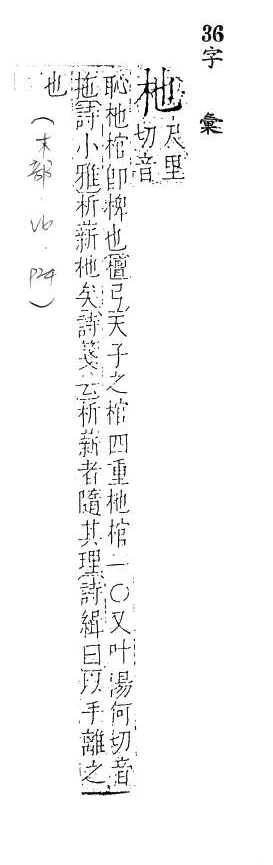 36
字彙
杝 尺里切音
恥杝棺卽椑也檀弓天子之棺四重杝棺一〇又叶湯何切音
拖詩小雅析薪杝矣詩箋云析薪者隨其理詩緝曰以手離之
也 (木部·V6·P24)